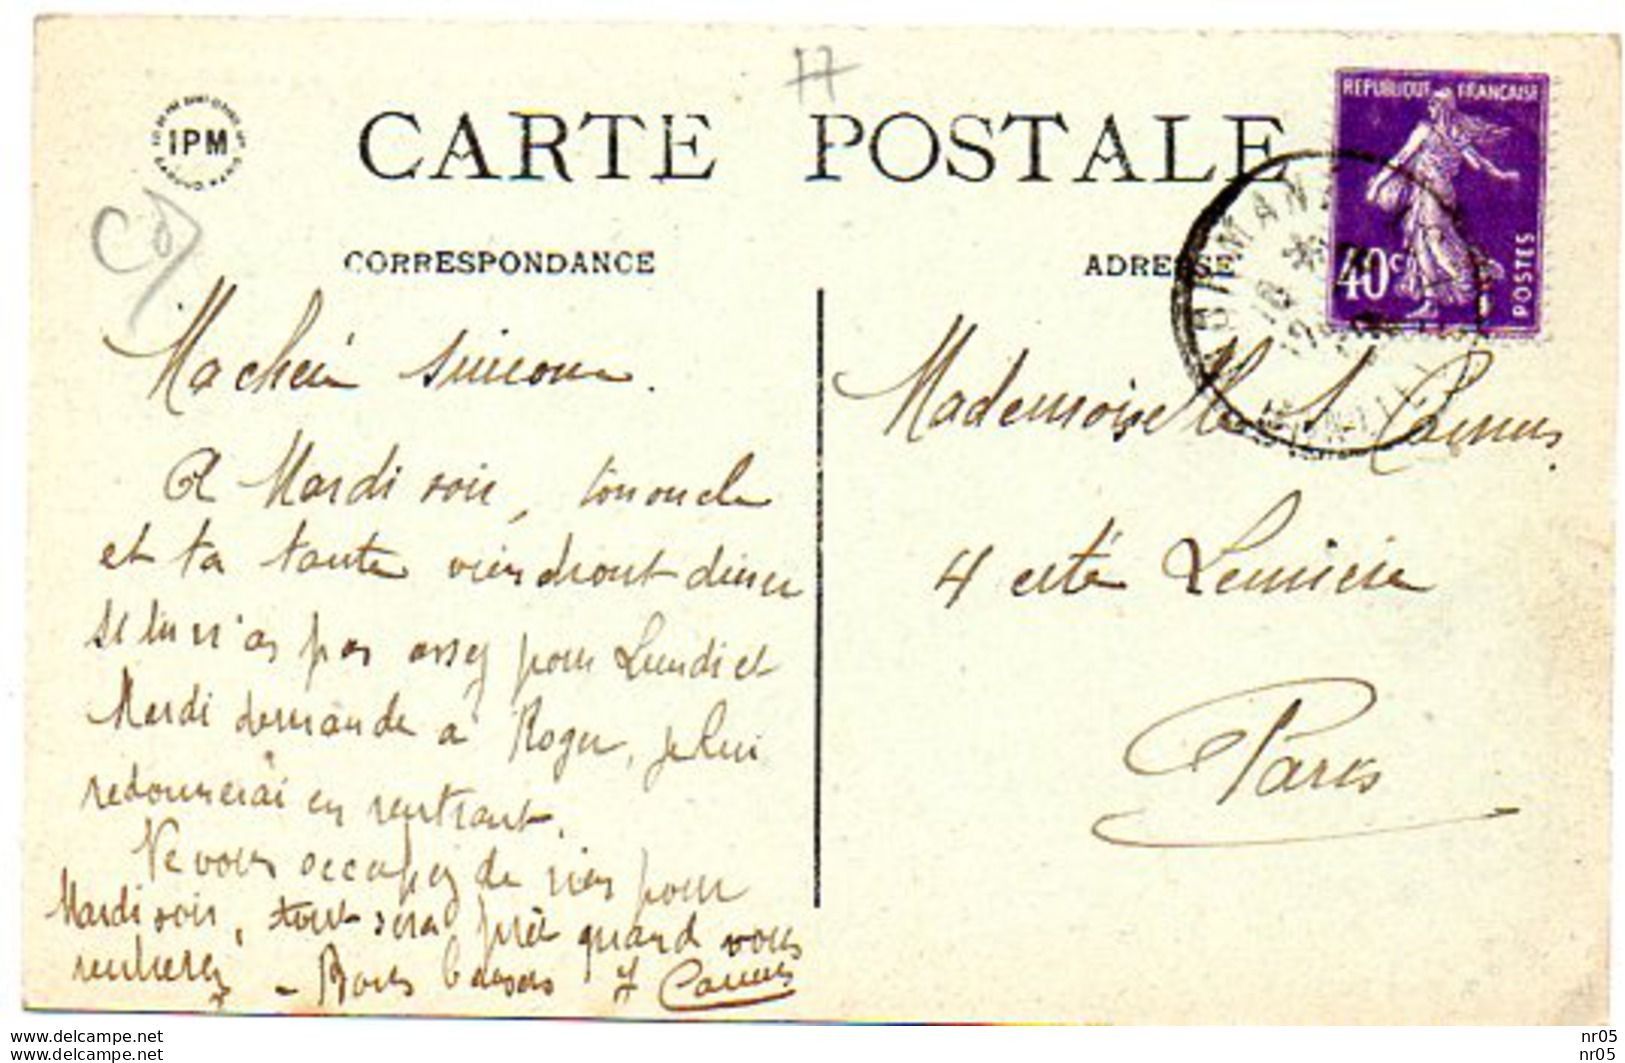 17
IPM
CARTE POSTALE
CORRESPONDANCE
ADRESSE
REPUBLIQUE FRANÇAISE
40c
POSTES
Ma chère Simone.
A Mardi soir, ton oncle
et ta tante viendront diner
si tu n'as pas assez pour Lundi et
Mardi demande à Roger, je lui
redonnerai en rentrant.
Ne vous occupez de rien pour
Mardi soir, tout sera prêt quand vous
rentrerez - Bons baisers
Camus
Mademoiselle S Camus
4 cité Lemière
Paris
delcampe.net
delcampe.net
nr05
nr05